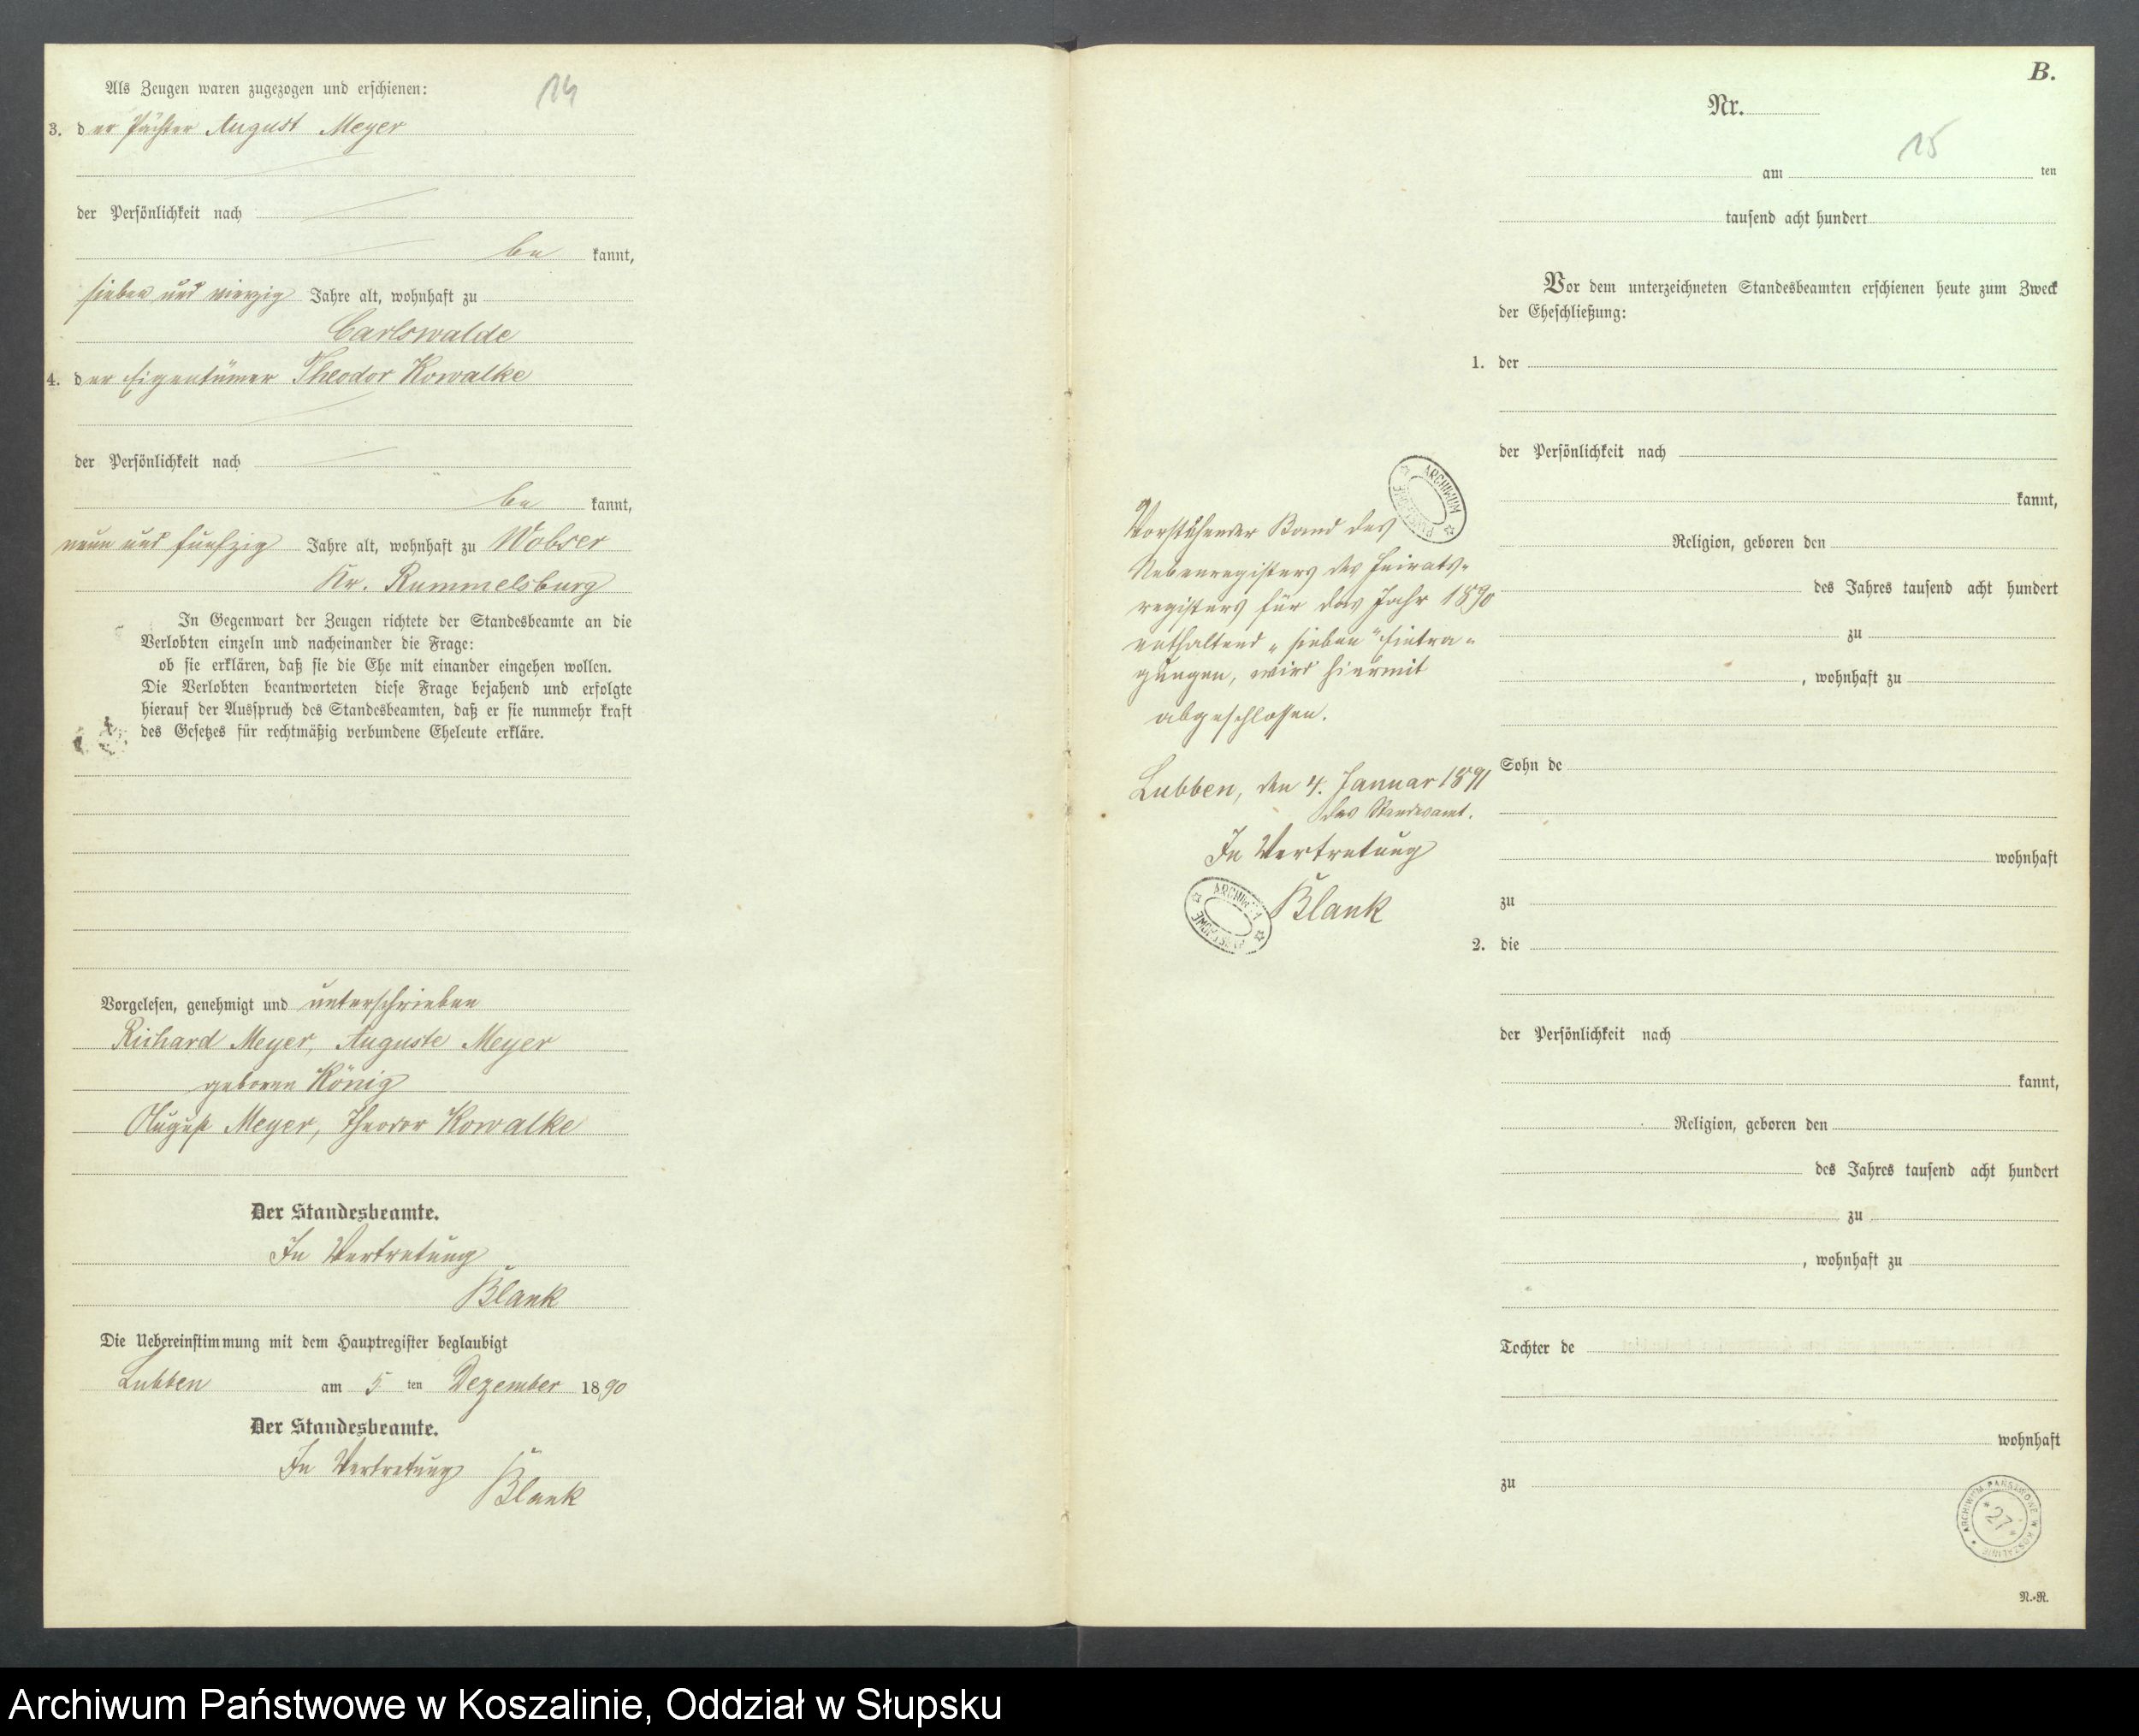 14
Als Zeugen waren zugezogen und erschienen:
3. der Pächter August Meyer
der Persönlichkeit nach
be kannt,
sieben und vierzig Jahre alt, wohnhaft zu
Carlswalde
4. der Eigentümer Theodor Kowalke
der Persönlichkeit nach
be kannt,
neun und funfzig Jahre alt, wohnhaft zu Wobser
Kr. Rummelsburg
In Gegenwart der Zeugen richtete der Standesbeamte an die
Verlobten einzeln und nacheinander die Frage:
ob sie erklären, daß sie die Ehe mit einander eingehen wollen.
Die Verlobten beantworteten diese Frage bejahend und erfolgte
hierauf der Ausspruch des Standesbeamten, daß er sie nunmehr kraft
des Gesetzes für rechtmäßig verbundene Eheleute erkläre.
Vorgelesen, genehmigt und unterschrieben
Richard Meyer, Auguste Meyer
geboren König
August Meyer, Theodor Kowalke
Der Standesbeamte.
In Vertretung
Blank
Die Uebereinstimmung mit dem Hauptregister beglaubigt
Lubben am 5 ten Dezember 1890
Der Standesbeamte.
In Vertretung
Blank
Vorstehender Band des
Nebenregisters des Heirats-
registers für das Jahr 1890
enthaltend „sieben" Eintra-
gungen, wird hiermit
abgeschlossen.
Lubben, den 4. Januar 1891
Das Standesamt.
In Vertretung
Blank
ARCHIWUM PAŃSTWOWE
ARCHIWUM PAŃSTWOWE
B.
Nr.
15
am ten
tausend acht hundert
Vor dem unterzeichneten Standesbeamten erschienen heute zum Zweck
der Eheschließung:
1. der
der Persönlichkeit nach
kannt,
Religion, geboren den
des Jahres tausend acht hundert
zu
, wohnhaft zu
Sohn de
wohnhaft
zu
2. die
der Persönlichkeit nach
kannt,
Religion, geboren den
des Jahres tausend acht hundert
zu
, wohnhaft zu
Tochter de
wohnhaft
zu
ARCHIWUM PAŃSTWOWE W KOSZALINIE
* 27 *
N.-R.
Archiwum Państwowe w Koszalinie, Oddział w Słupsku